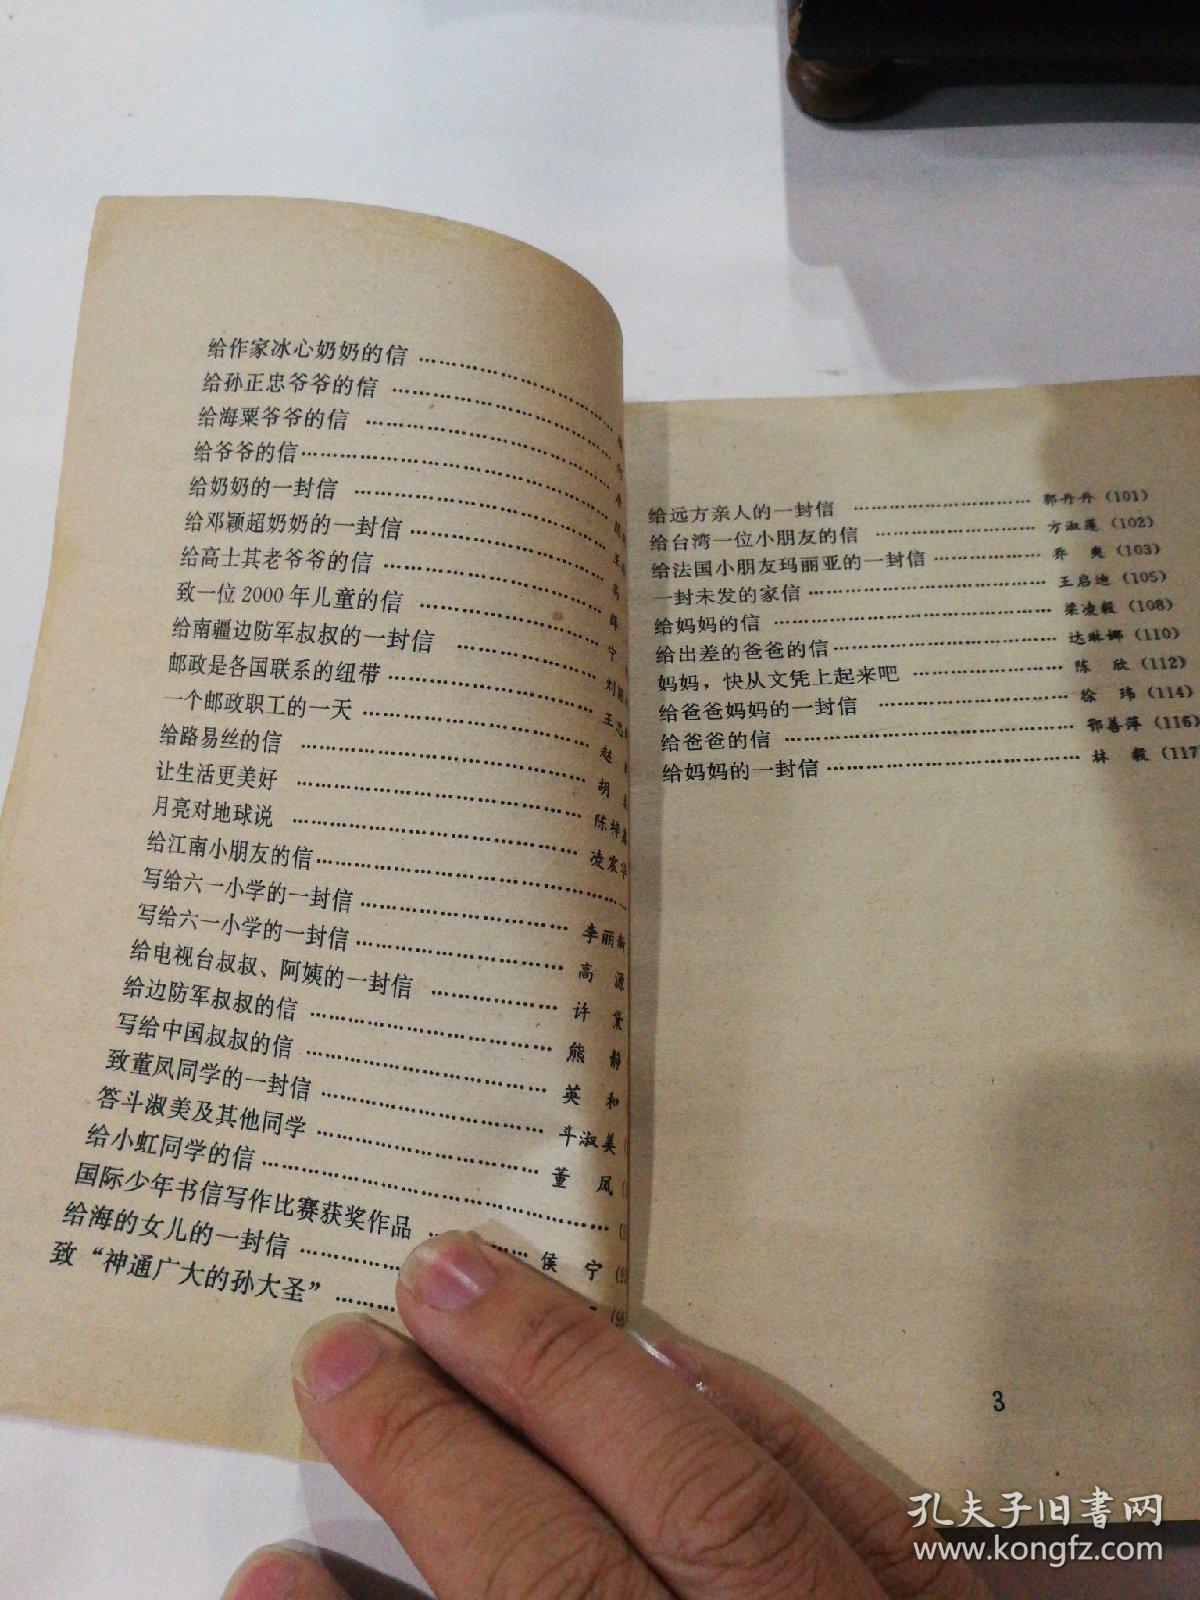 给作家冰心奶奶的信
给孙正忠爷爷的信
给海粟爷爷的信
给爷爷的信
给奶奶的一封信
给邓颖超奶奶的一封信
给高士其老爷爷的信
致一位2000年儿童的信
给南疆边防军叔叔的一封信
邮政是各国联系的纽带
一个邮政职工的一天
给路易丝的信
让生活更美好
月亮对地球说
给江南小朋友的信
写给六一小学的一封信 李丽
写给六一小学的一封信 高 源
给电视台叔叔、阿姨的一封信 许 黛
给边防军叔叔的信 熊 静
写给中国叔叔的信 英 和
致董凤同学的一封信 斗淑美
答斗淑美及其他同学 董 凤
给小虹同学的信
国际少年书信写作比赛获奖作品
给海的女儿的一封信 侯 宁
致“神通广大的孙大圣”
给远方亲人的一封信 郭丹丹(101)
给台湾一位小朋友的信 方淑莲(102)
给法国小朋友玛丽亚的一封信 乔 爽(103)
一封未发的家信 王启迪(105)
给妈妈的信 梁凌毅(108)
给出差的爸爸的信 达琳娜(110)
妈妈，快从文凭上起来吧 陈 欣(112)
给爸爸妈妈的一封信 徐 玮(114)
给爸爸的信 鄂善萍(116)
给妈妈的一封信 林 毅(117
3
孔夫子旧书网
www.kongfz.com